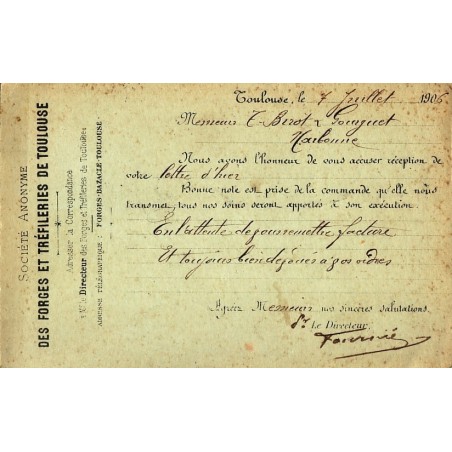 SOCIÉTÉ ANONYME
DES FORGES ET TRÉFILERIES DE TOULOUSE
Adresser la Correspondance
à M. le Directeur des Forges et Tréfileries de Toulouse
ADRESSE TÉLÉGRAPHIQUE : FORGES-BAZACLE-TOULOUSE
Toulouse, le 7 Juillet 1905
Messieurs T. Birot &
Narbonne
Nous avons l'honneur de vous accuser réception de
votre lettre d'hier
Bonne note est prise de la commande qu'elle nous
transmet, tous nos soins seront apportés à son exécution.
En l'attente de pouvoir remettre facture
Et toujours bien dévoués à vos ordres
Agréez Messieurs nos sincères salutations.
Pr Le Directeur,